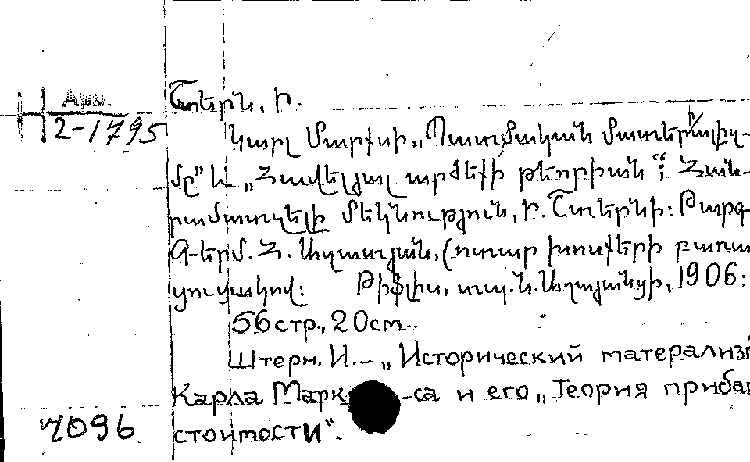 Арм.
2-1795
Շտերն, Ի.
Կարլ Մարքսի „Պատմական մատերիալիզ-
մը" և „Հավելյալ արժեքի թեորիան": Հան-
րամատչելի մեկնություն, Ի. Շտերնի: Թարգ.
Գ-երմ. Հ. (օտար խոսքերի բառա
ցուցակով: Թիֆլիս, տպ. Ն. Աղանյանցի, 1906:
56стр., 20см.
Штерн. И.- „Исторический матерализ
Карла Марк -са и его „Теория прибав
7096 стоимости".